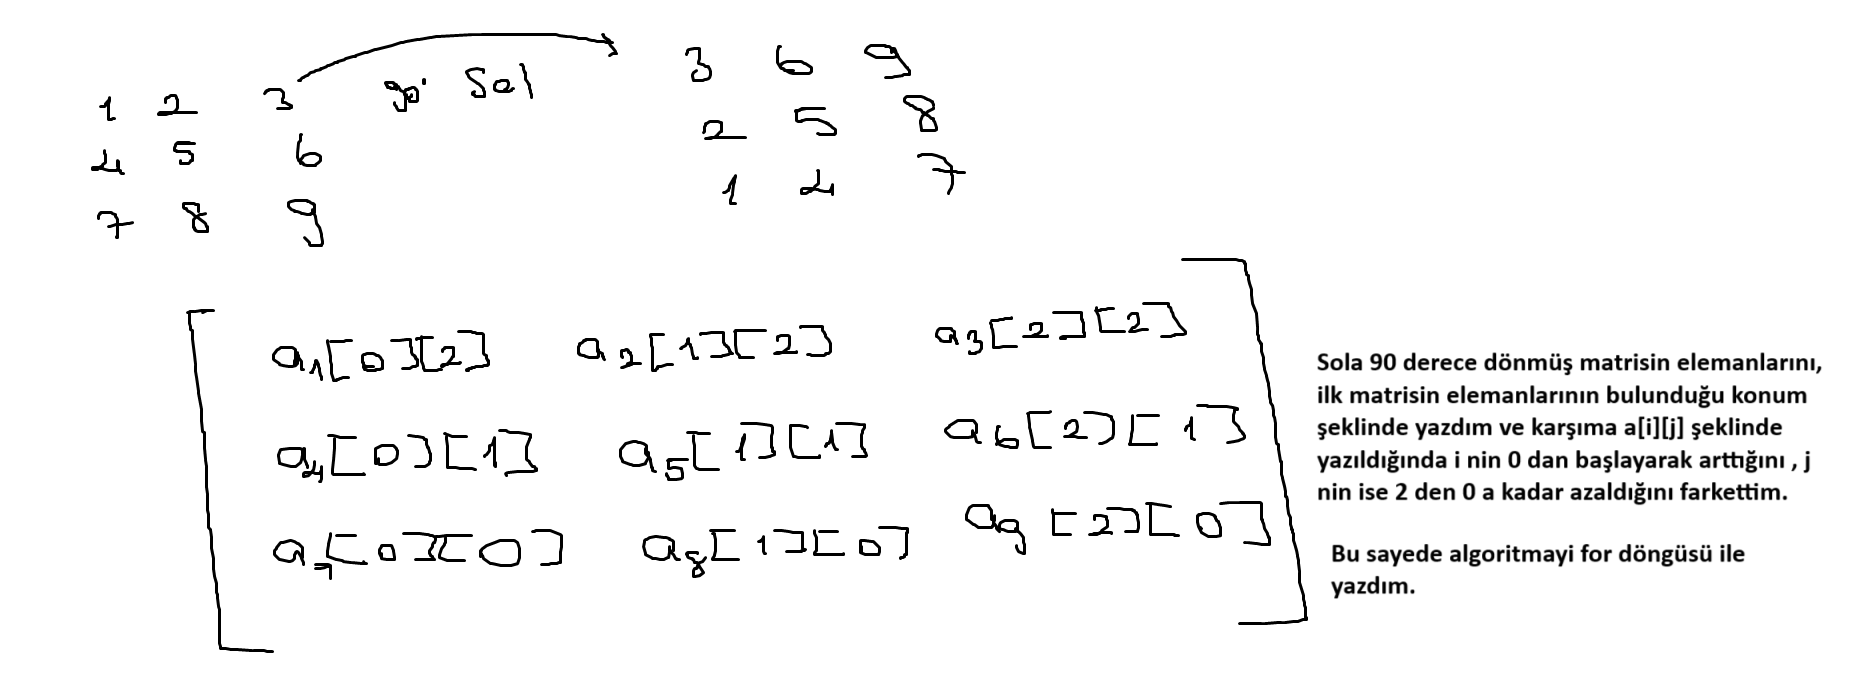 1 2 3 90° Sol 3 6 9
4 5 6 2 5 8
7 8 9 1 4 7
a1[0][2] a2[1][2] a3[2][2]
a4[0][1] a5[1][1] a6[2][1]
a7[0][0] a8[1][0] a9[2][0]
Sola 90 derece dönmüş matrisin elemanlarını,
ilk matrisin elemanlarının bulunduğu konum
şeklinde yazdım ve karşıma a[i][j] şeklinde
yazıldığında i nin 0 dan başlayarak arttığını , j
nin ise 2 den 0 a kadar azaldığını farkettim.
Bu sayede algoritmayi for döngüsü ile
yazdım.